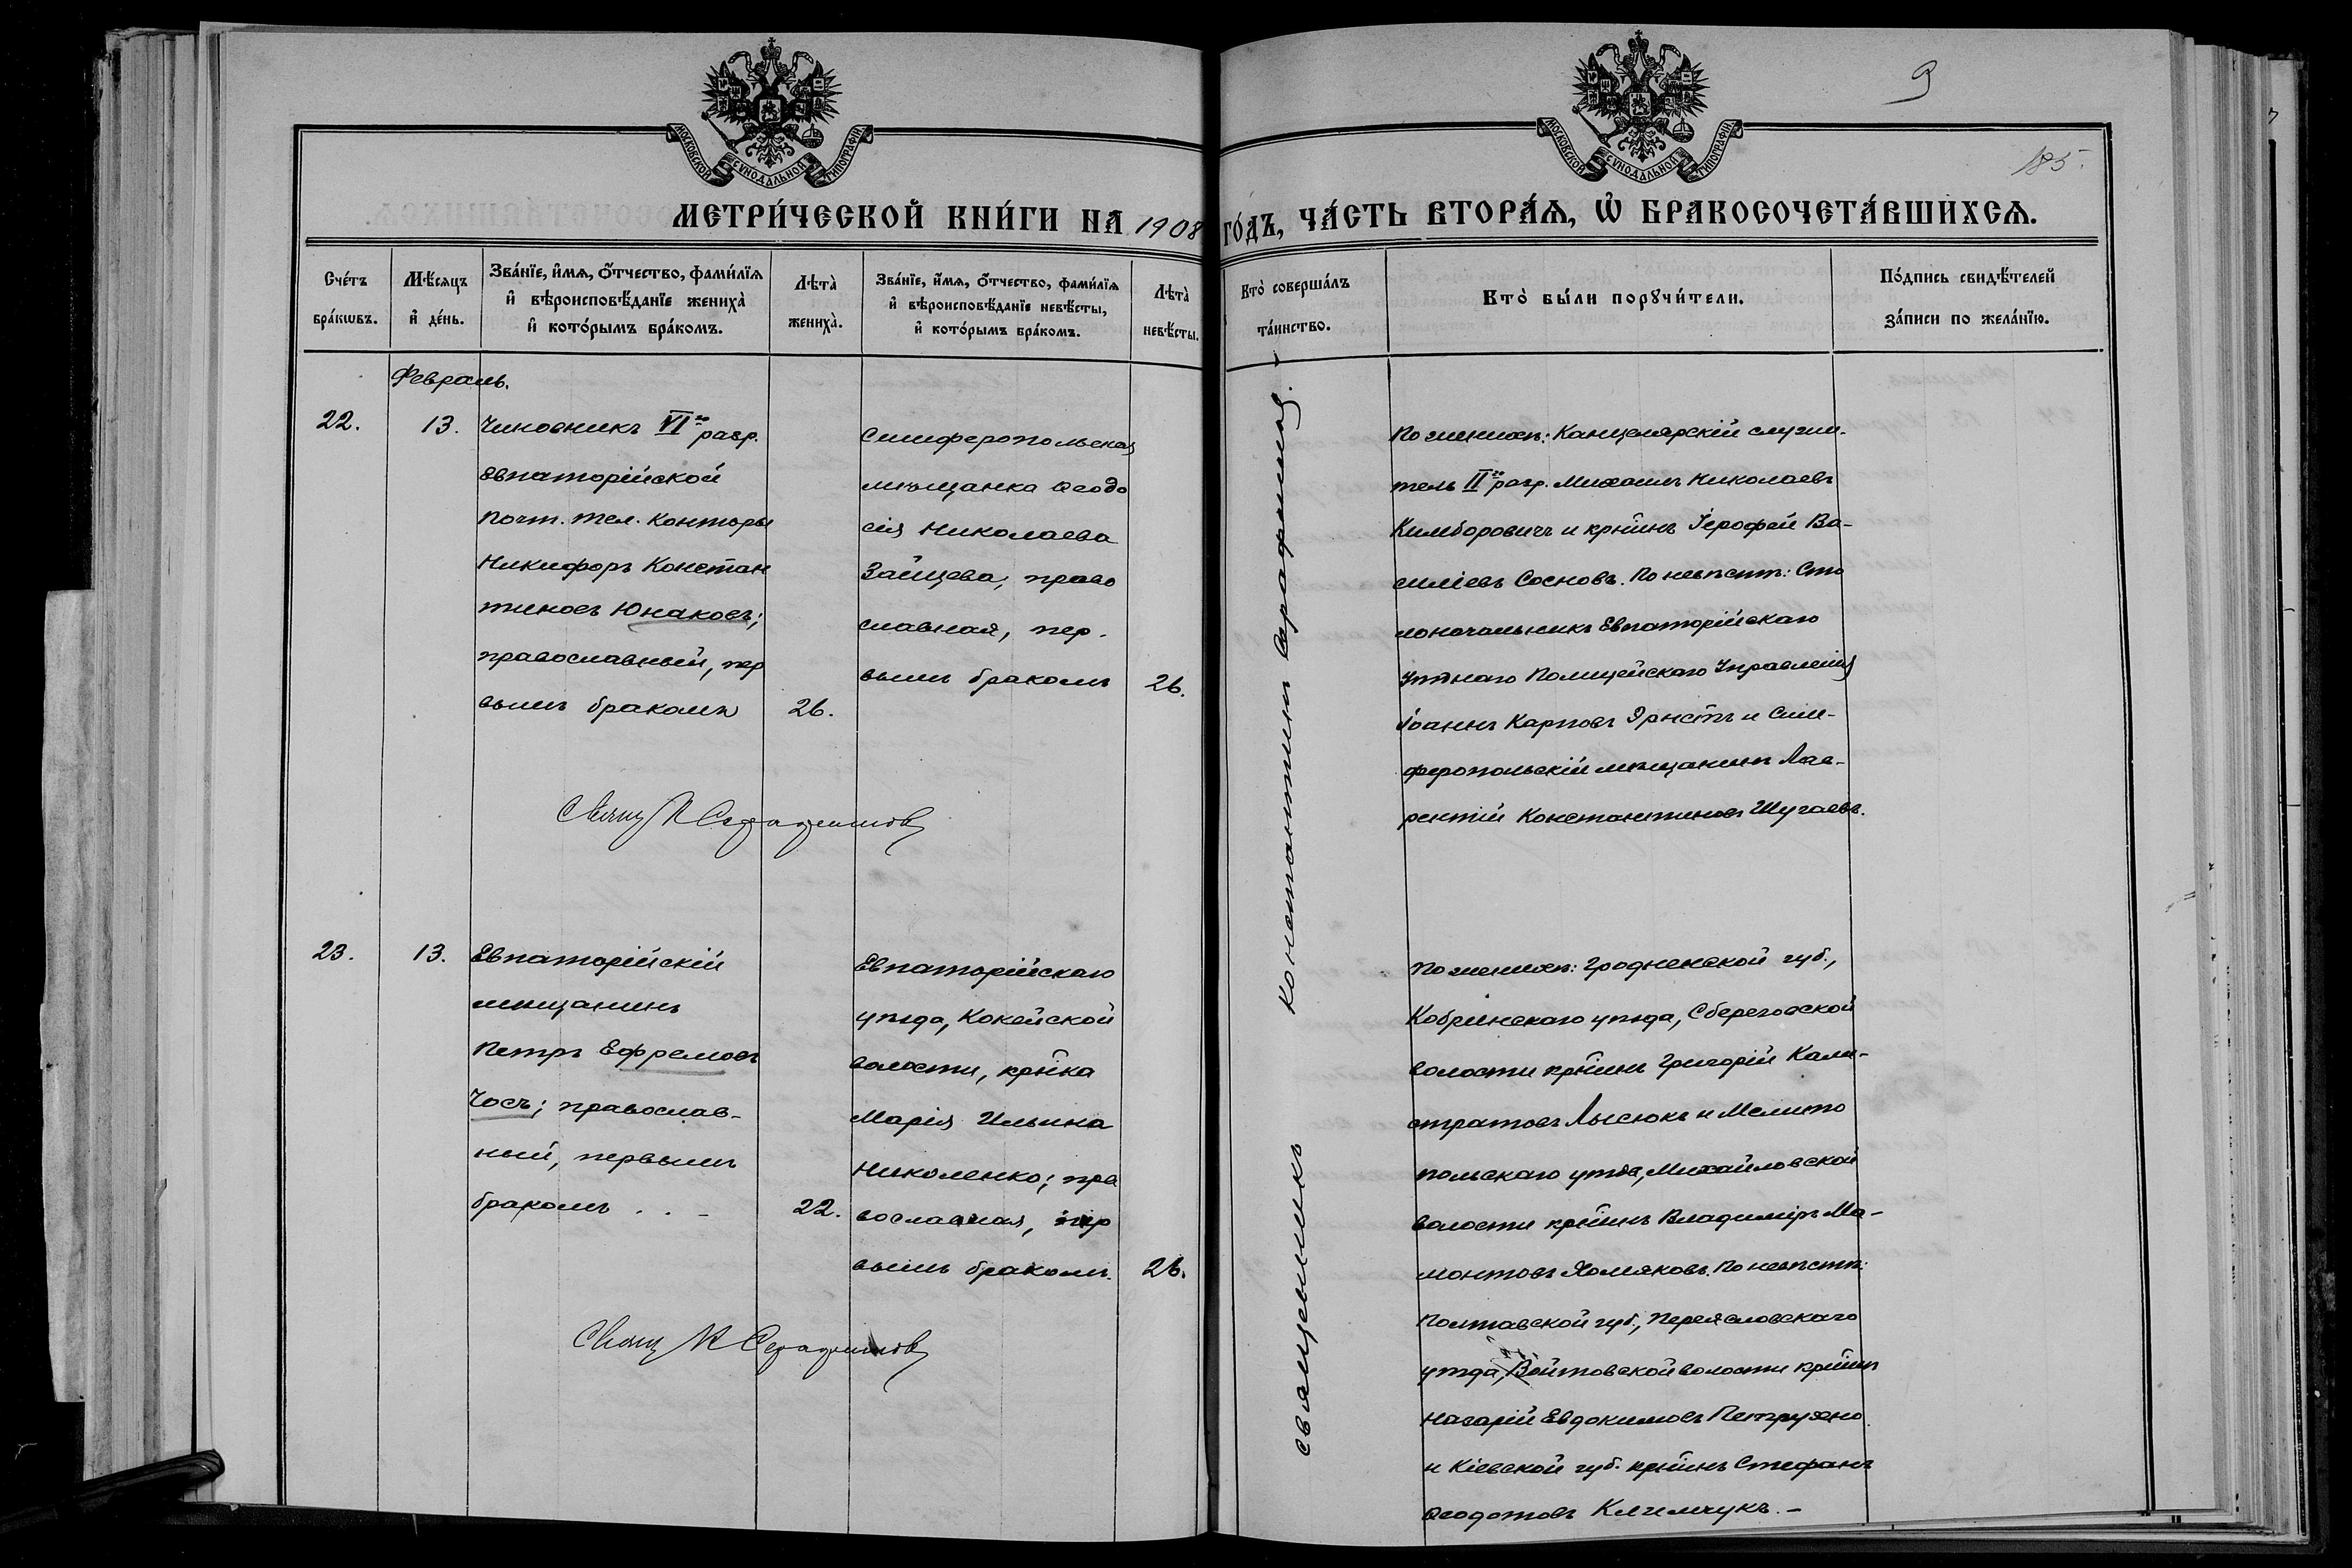 МОСКОВСКОЙ СѴНОДАЛЬНОЙ ТИПОГРАФІИ
МОСКОВСКОЙ СѴНОДАЛЬНОЙ ТИПОГРАФІИ
9
185.
МЕТРИ́ЧЕСКОЙ КНИ́ГИ НА 1908 ГО́ДЪ, ЧА́СТЬ ВТОРА́Я, Ѡ҆ БРАКОСОЧЕТА́ВШИХСЯ.
Сче́тъ бра́кѡвъ.
Мѣ́сяцъ и҆ де́нь.
Зва́нїе, и҆́мя, ѻ҆́тчество, фами́лїя и҆ вѣроисповѣ́данїе жениха̀ и҆ кото́рымъ бра́комъ.
Лѣта̀ жениха̀.
Зва́нїе, и҆́мя, ѻ҆́тчество, фами́лїя и҆ вѣроисповѣ́данїе невѣ́сты, и҆ кото́рымъ бра́комъ.
Лѣта̀ невѣ́сты.
Кто̀ соверша́лъ та́инство.
Кто̀ бы́ли порꙋчи́тели.
По́дпись свидѣ́телей за́писи по жела́нїю.
Февраль.
22.
13.
Чиновникъ VIго разр.
Евпаторійской
Почт. тел. Конторы
Никифоръ Констан
тиновъ Юнаковъ;
православный, пер
вымъ бракомъ
26.
Симферопольская
мѣщанка Ѳеодо
сія Николаева
Зайцева, право
славная, пер-
вымъ бракомъ
26.
По женихѣ: Канцелярскій служи-
тель IIго разр. Михаилъ Николаевъ
Кимборовичъ и кр-нинъ Іерофей Ва-
силіевъ Сосновъ. По невѣстѣ: Сто
лоначальникъ Евпаторійскаго
уѣзднаго Полицейскаго Управленія
Іоаннъ Карповъ Эрнстъ и Сим-
феропольскій мѣщанинъ Лав-
рентій Константиновъ Шугаевъ.
Свящ К Серафимовъ
23.
13.
Евпаторійскій
мѣщанинъ
Петръ Ефремовъ
Чосъ; православ-
ный, первымъ
бракомъ . . -
22.
Евпаторійскаго
уѣзда, Кокейской
волости, кр-нка
Марія Ильина
Николенко; пра
вославная, пер
вымъ бракомъ.
26.
По женихѣ: Гродненской губ.,
Кобринскаго уѣзда, Сбереговской
волости кр-нинъ Григорій Кали-
стратовъ Лысюкъ и Мелито
польскаго уѣзда, Михайловской
волости кр-нинъ Владиміръ Ма-
монтовъ Хомяковъ. По невѣстѣ:
Полтавской губ., Переяславскаго
уѣзда, Войтовской волости кр-нинъ
Назарій Евдокимовъ Петрухно
и Кіевской губ. кр-нинъ Стефанъ
Ѳеодотовъ Климчукъ. -
Свящ К Серафимовъ
Священникъ Константинъ Серафимовъ. -